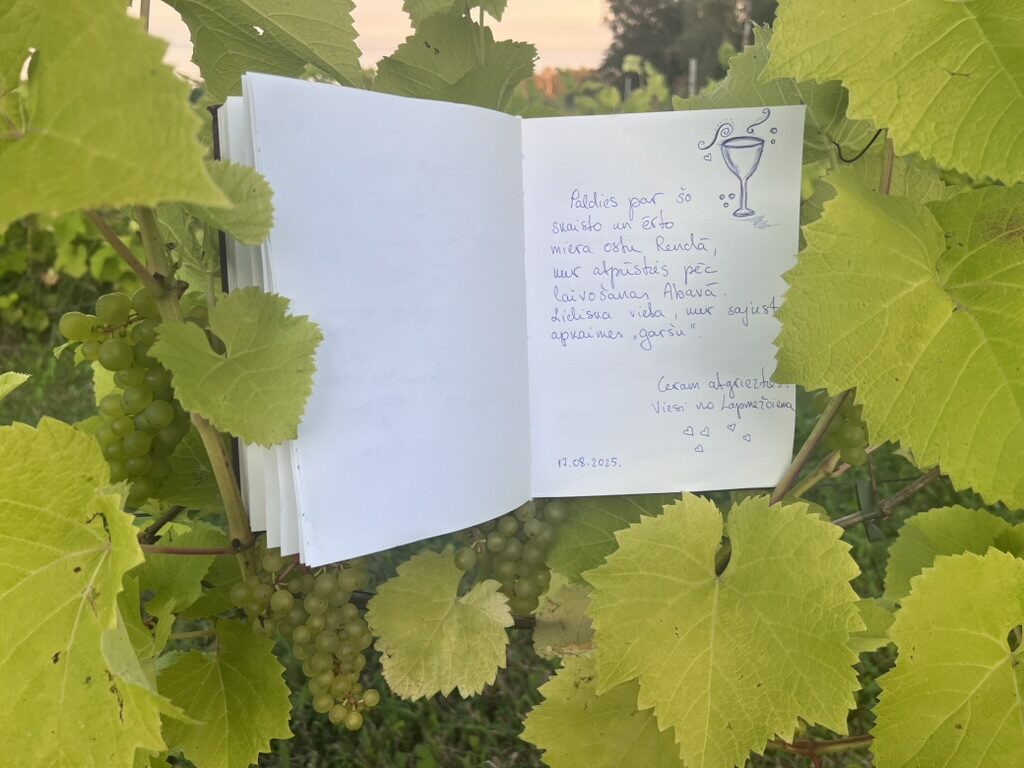 Paldies par šo
skaisto un ērto
miera ostu Rendā,
kur atpūsties pēc
laivošanas Abavā.
Lieliska vieta, kur sajust
apkaimes „garšu".
Ceram atgriezties
Viesi no Lapmežciema
17.08.2025.